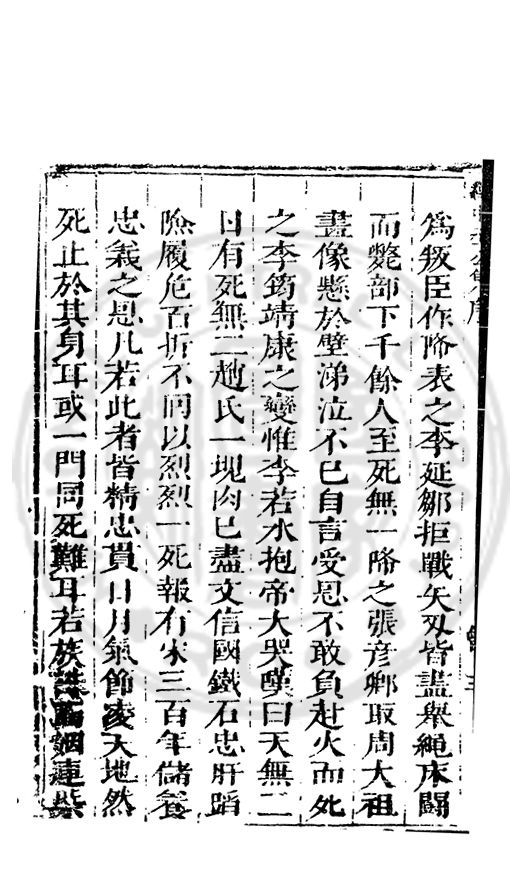 為叛臣作降表之李延鄒拒戰矢刃皆盡舉繩床鬪
而斃部下千餘人至死無一降之張彥卿取周大祖
畫像懸於壁涕泣不已自言受恩不敢負赴火而死
之李筠靖康之變惟李若水抱帝大哭嘆曰天無二
日有死無二趙氏一塊肉已盡文信國鐵石忠肝蹈
險履危百折不回以烈烈一死報有宋三百年儲養
忠義之恩凡若此者皆精忠貫日月氣節凌天地然
死止於其身耳或一門同死難耳若族誅姻連